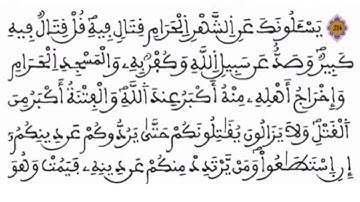 يَسْـَٔلُونَكَ عَنِ اِ۬لشَّهْرِ اِ۬لْحَرَامِ قِتَالٖ فِيهِۖ قُلْ قِتَالٞ فِيهِ
كَبِيرٞۖ وَصَدٌّ عَن سَبِيلِ اِ۬للَّهِ وَكُفْرُۢ بِهِۦ وَالْمَسْجِدِ اِ۬لْحَرَامِ
وَإِخْرَاجُ أَهْلِهِۦ مِنْهُ أَكْبَرُ عِندَ اَ۬للَّهِۖ وَالْفِتْنَةُ أَكْبَرُ مِنَ
اَ۬لْقَتْلِۖ وَلَا يَزَالُونَ يُقَٰتِلُونَكُمْ حَتَّىٰ يَرُدُّوكُمْ عَن دِينِكُمُۥٓ
إِنِ اِ۪سْتَطَٰعُواْۖ وَمَنْ يَّرْتَدِدْ مِنكُمْ عَن دِينِهِۦ فَيَمُتْ وَهُوَ